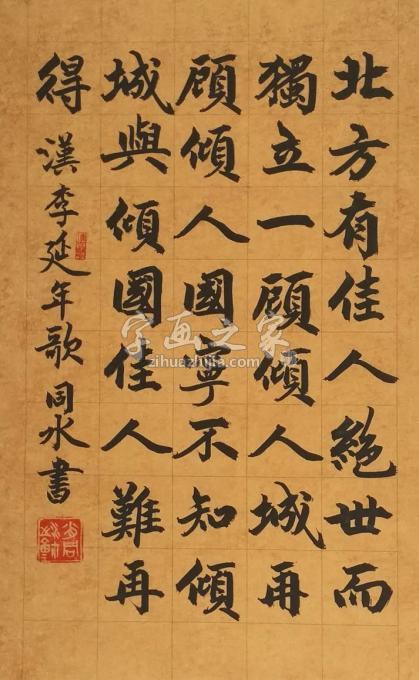 北方有佳人絕世而
獨立一顧傾人城再
顧傾人國寧不知傾
城與傾國佳人難再
得 漢李延年歌 同水書
字画之家
zihuazhijia.com